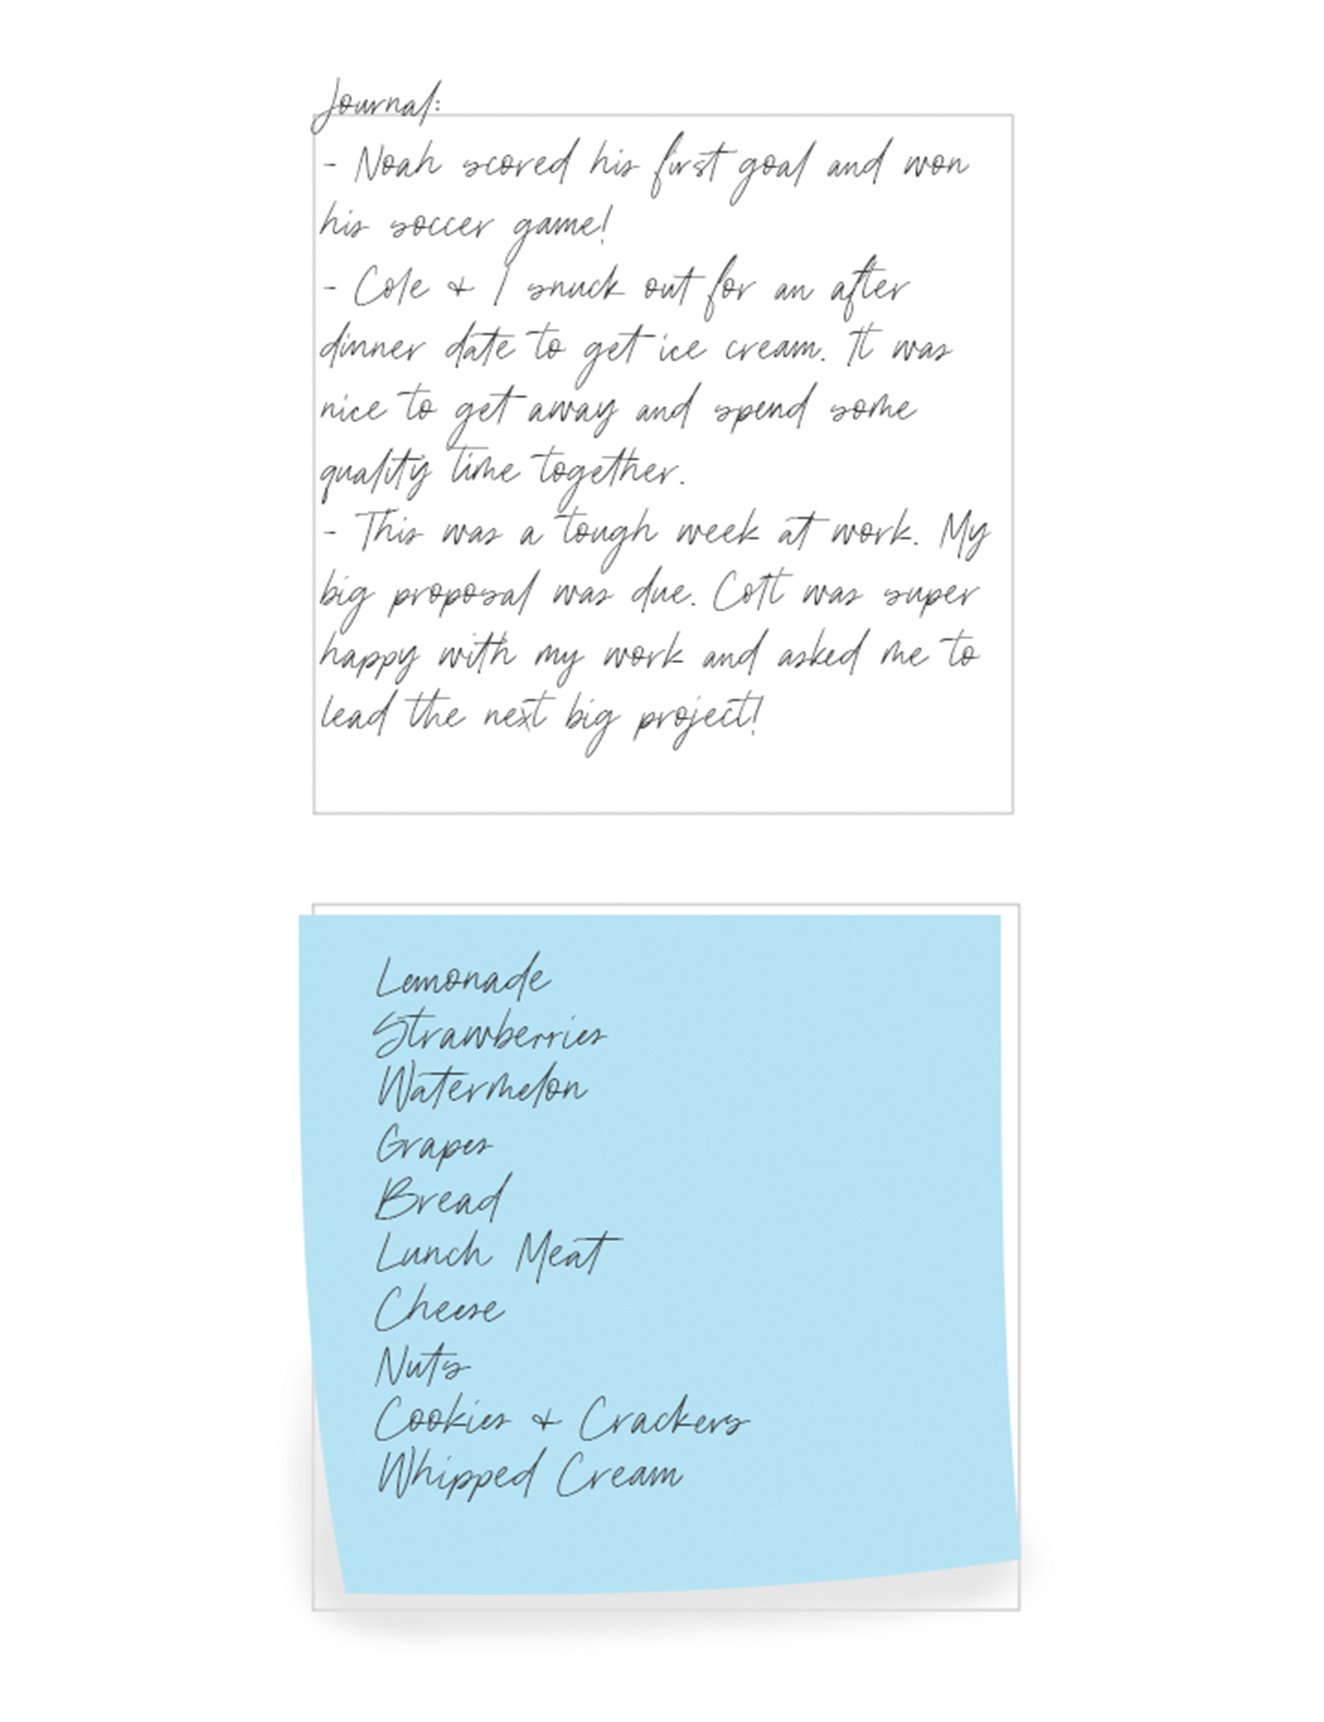 Journal:
- Noah scored his first goal and won
his soccer game!
- Cole & I snuck out for an after
dinner date to get ice cream. It was
nice to get away and spend some
quality time together.
- This was a tough week at work. My
big proposal was due. Cott was super
happy with my work and asked me to
lead the next big project!
Lemonade
Strawberries
Watermelon
Grapes
Bread
Lunch Meat
Cheese
Nuts
Cookies & Crackers
Whipped Cream